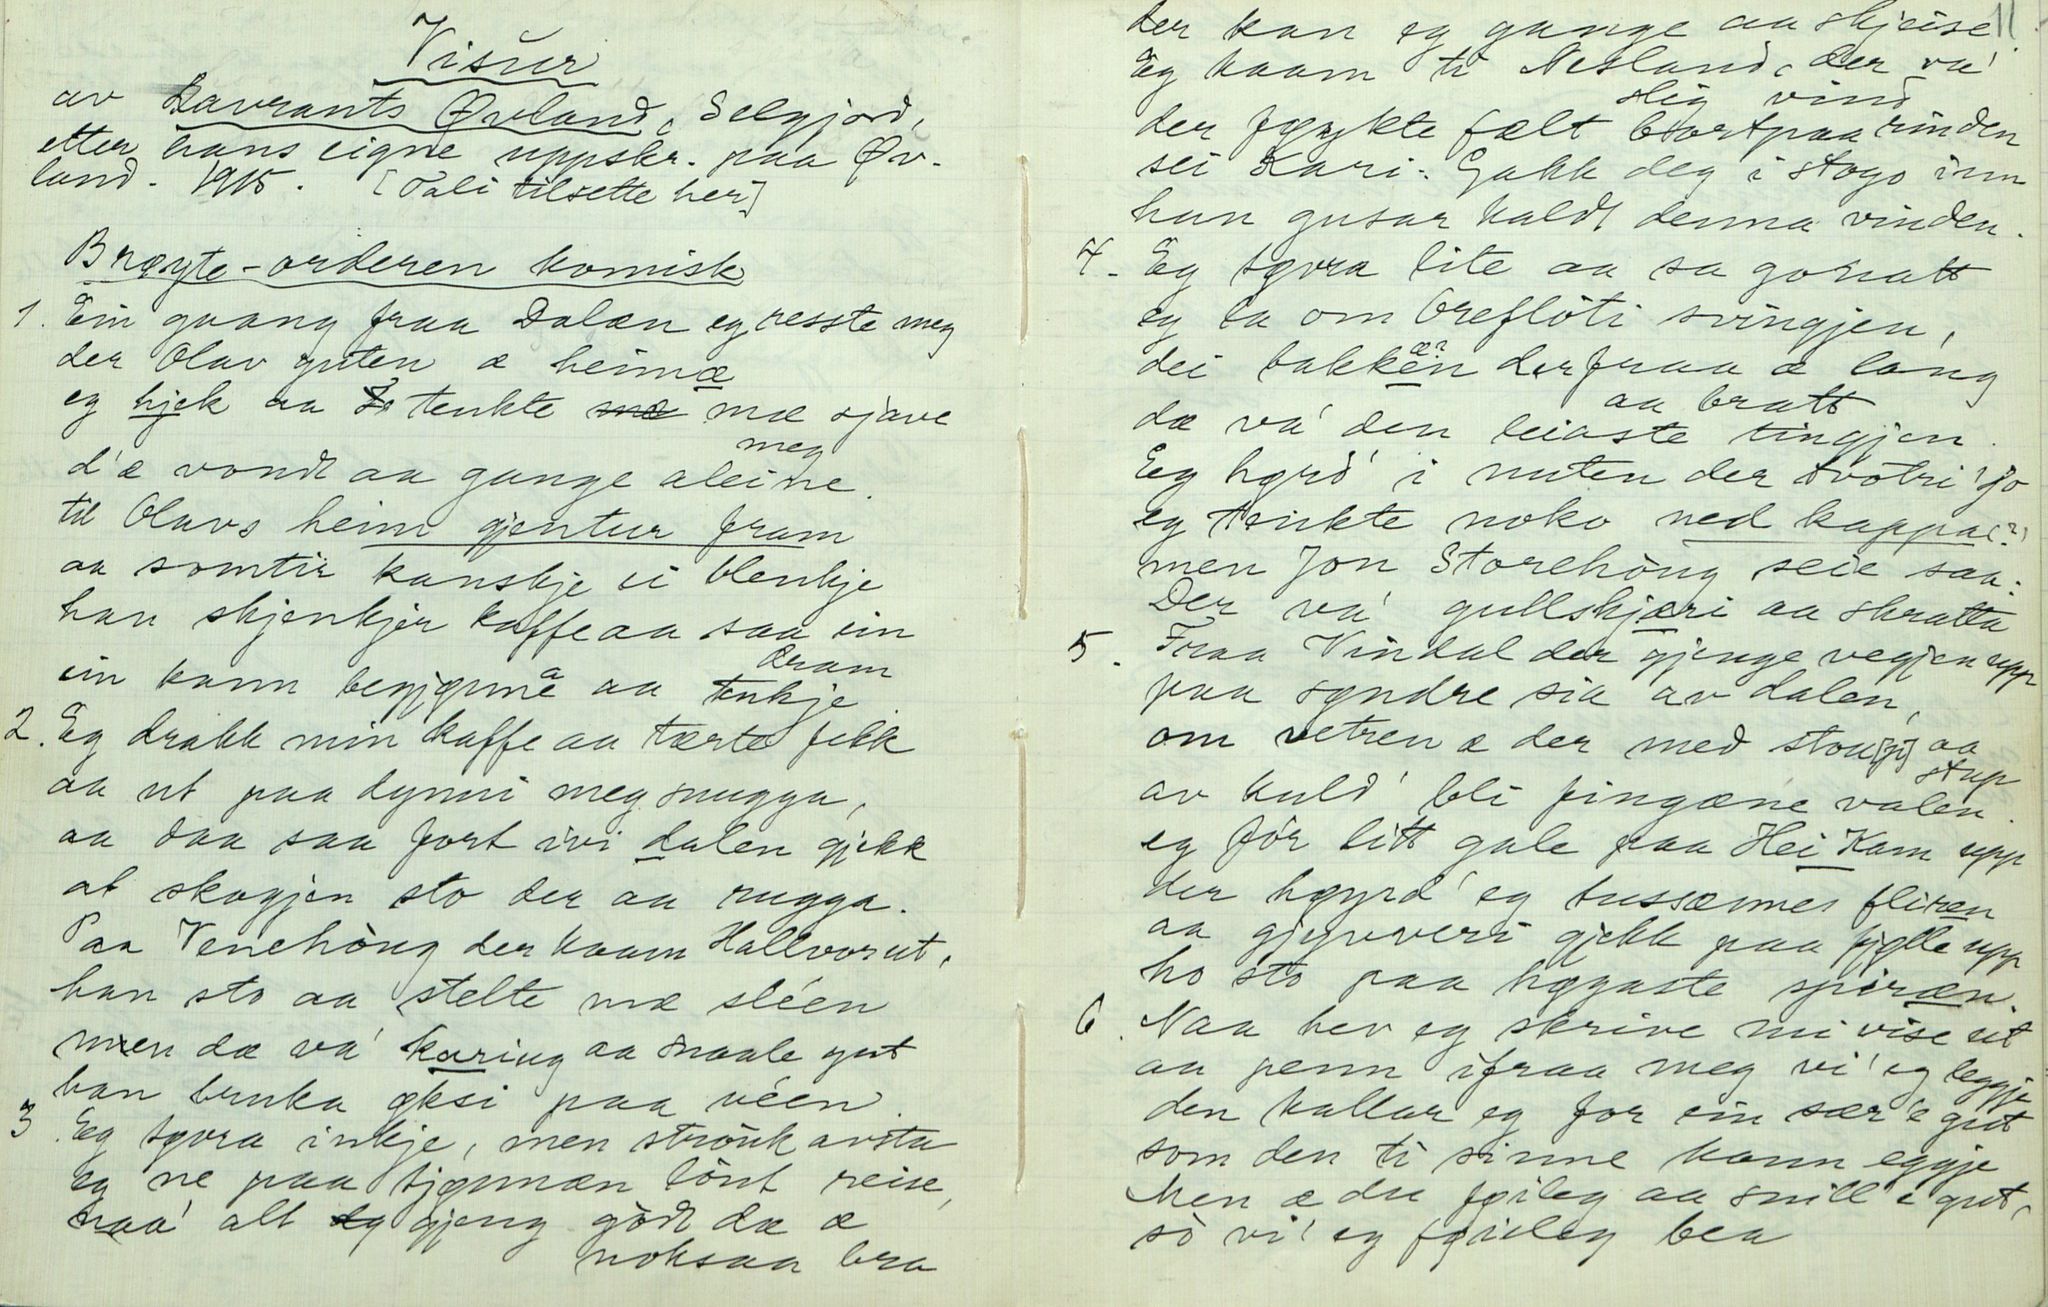 Visur
av Lavrants Øvland, Selgjord,
etter hans eigne uppskr. paa Øv-
land. 1915. [Tali tilsette her]
Brøyte-orderen komisk
1. Ein gaang fraa Dalæn eg resste meg
der Olav guten æ heimæ
eg hjek aa tenkte mæ mæ sjave meg
d'æ vondt aa gange aleine.
til Olavs heim gjentur fram
aa somtir kanskje ei blenkje
han skjenkjer kaffe aa saa ein dram
ein kann begjynna aa tenkje.
2. Eg drakk min kaffe aa tærte fekk
aa ut paa dynni meg snugga,
aa daa saa fort ivi dalen gjekk
at skogjen sto der aa rugga.
Paa Venehòug der kaam Hallvor ut,
han sto aa stelte mæ sléen
men dæ va' karing aa snaale gut
han bruka øksi paa véen.
3. Eg tøvra inkje, men strònk avsta
eg ne paa tjønnæn lònt reise,
naa' alt gjeng gòdt dæ æ noksaa bra
der kan eg gange aa skjeise. 11
Eg kaam ti Nesland, der va' slig vind
der føykte fælt bortpaa rinden
sei Kari: Gakk deg i stogo inn
han gusar kaldt denna vinden.
4. Eg tøvra lite aa sa gonatt
eg la om Oreflòti svingjen,
dei bakken ær? derfraa æ lang aa bratt
dæ va' den leiaste tingjen.
Eg høyrd' i nuten der tvòtri' jo
eg tenkte noko ned kappa(?)
men Jon Storehòug seie saa:
Der va' gullskjæri aa skratta
5. Fraa Vindal der gjenge vegjen upp
paa søndre sia av dalen,
om vetren æ der med stou[p] aa stup
av kuld' bli fingæne valen.
eg fòr litt gale paa Hei Kam upp
der høyrd' eg tussæmes fliræn
aa gjyvveri gjekk paa fjølle upp
ho sto paa høgaste spiræn.
6. Naa hev eg skrive mi vise ut
aa penn ifraa meg vi' eg leggje
den kallar eg for ein sær'e gut
som den ti sinne kann eggje
Men æ du føileg aa snill'e gut,
sò vi' eg føieleg bea